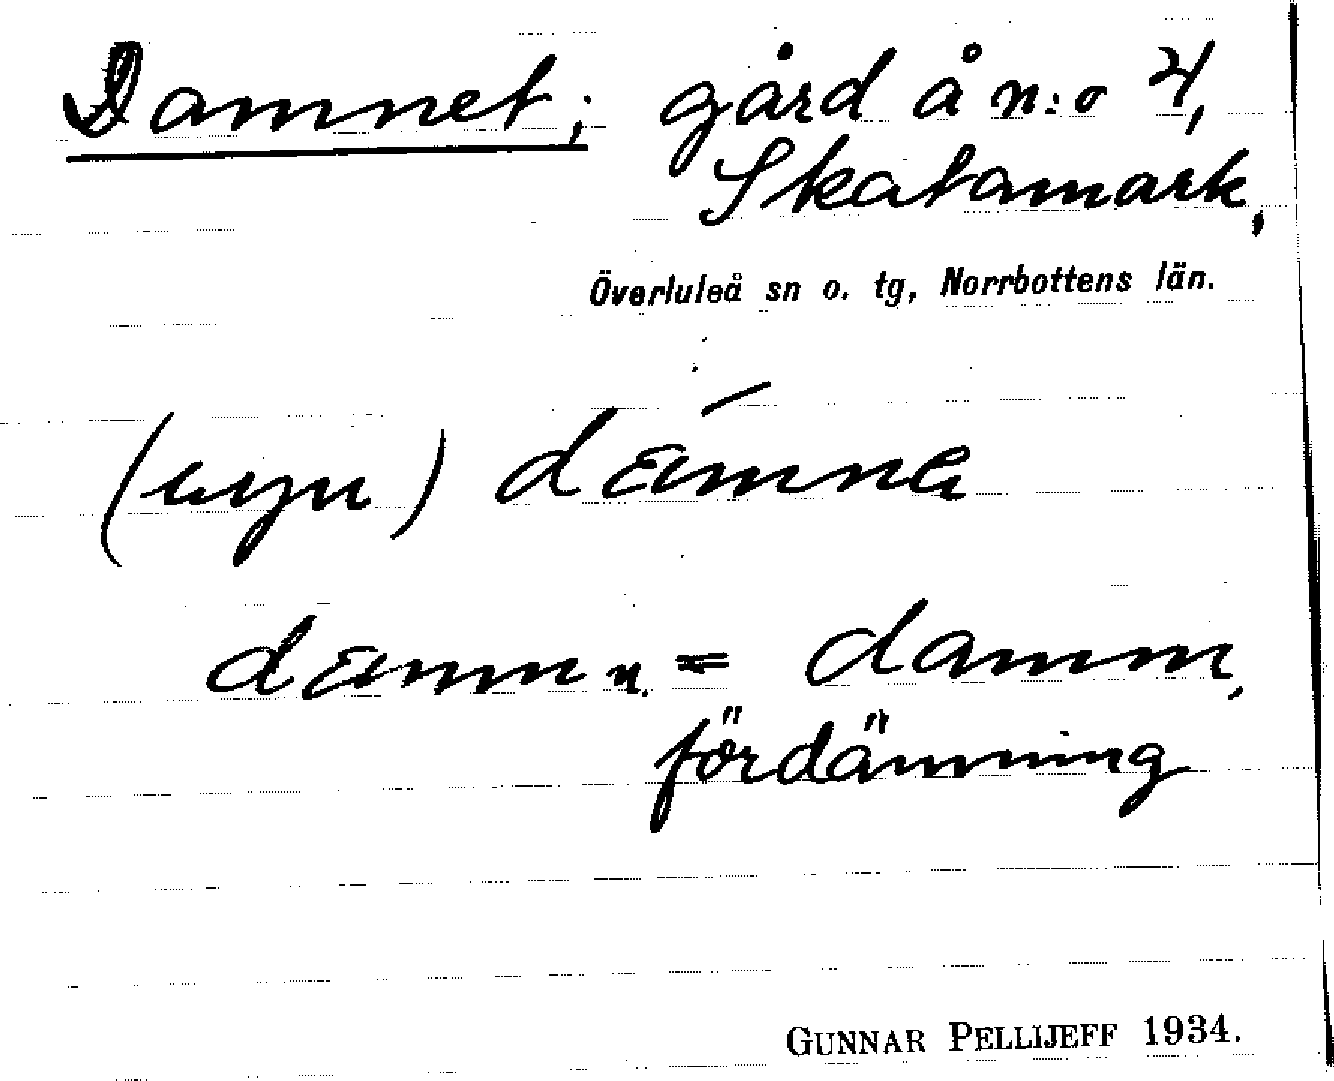 Damnet; gård å n:o 4,
Skatamark,
Överluleå sn o. tg, Norrbottens län.
(uyn) dæmne
dæmn n. = damm,
fördämning
GUNNAR PELLIJEFF 1934.